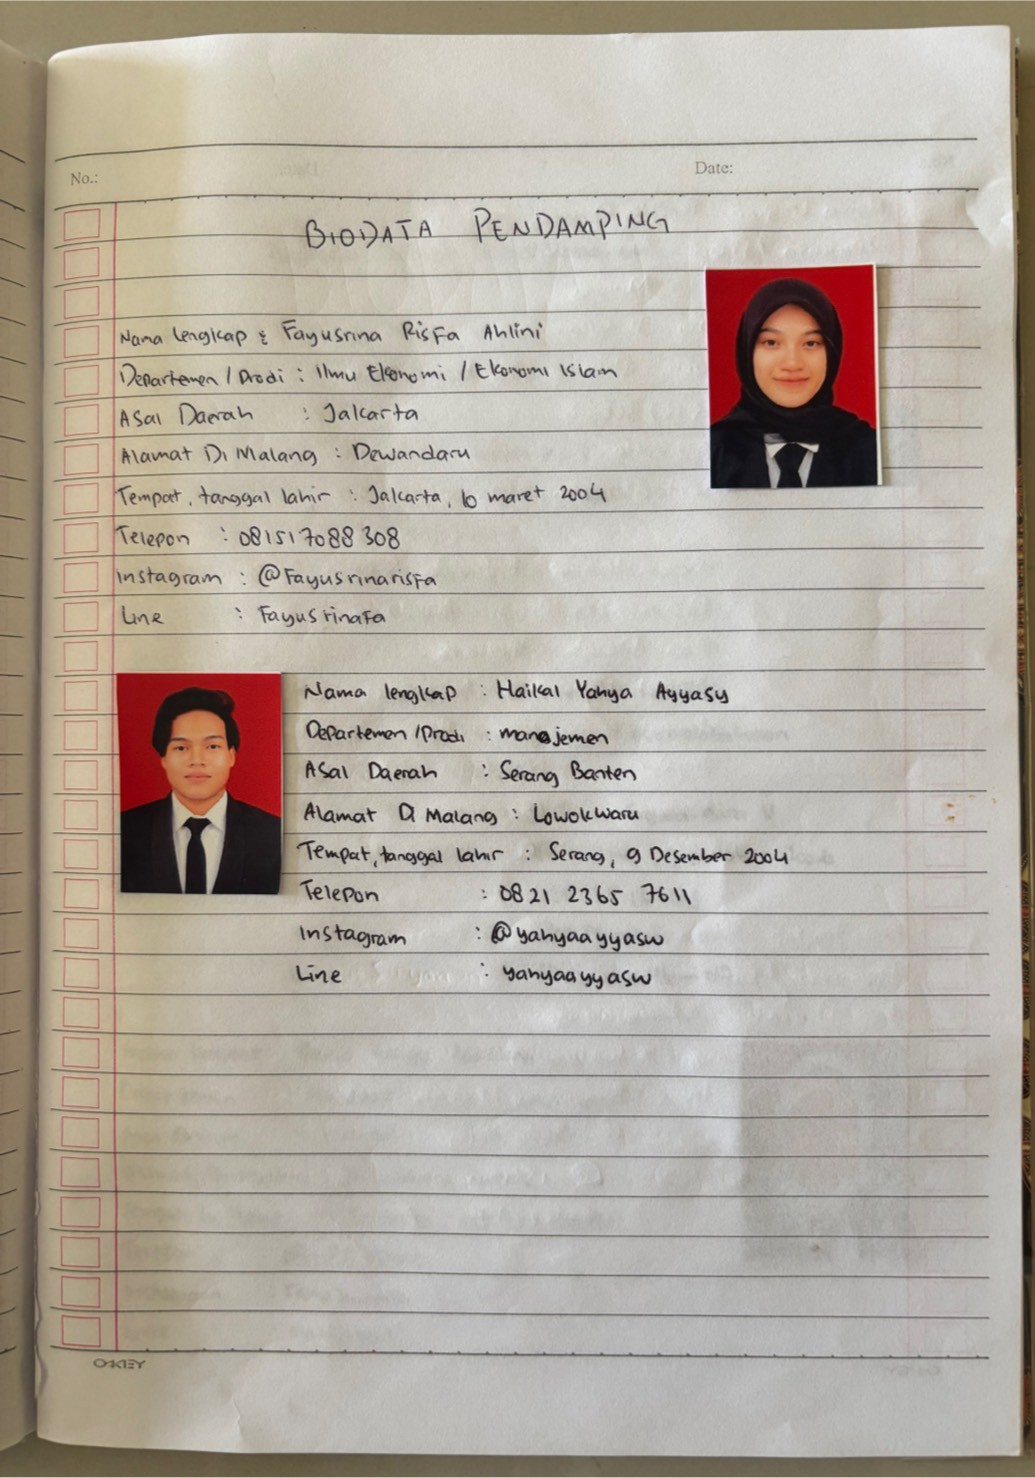 No.:
Date:
BIODATA PENDAMPING
Nama lengkap : Fayusrina Risfa Ahlini
Departemen / Prodi : Ilmu Ekonomi / Ekonomi Islam
Asal Daerah : Jakarta
Alamat Di Malang : Dewandaru
Tempat, tanggal lahir : Jakarta, 10 maret 2004
Telepon : 081517088 308
Instagram : @Fayusrinarisfa
Line : Fayusrinafa
Nama lengkap : Haikal Yahya Ayyasy
Departemen /Prodi : manajemen
Asal Daerah : Serang Banten
Alamat Di Malang : Lowokwaru
Tempat, tanggal lahir : Serang, 9 Desember 2004
Telepon : 0821 2365 7611
Instagram : @yahyaayyasw
Line : yahyaayyasw
OKEY